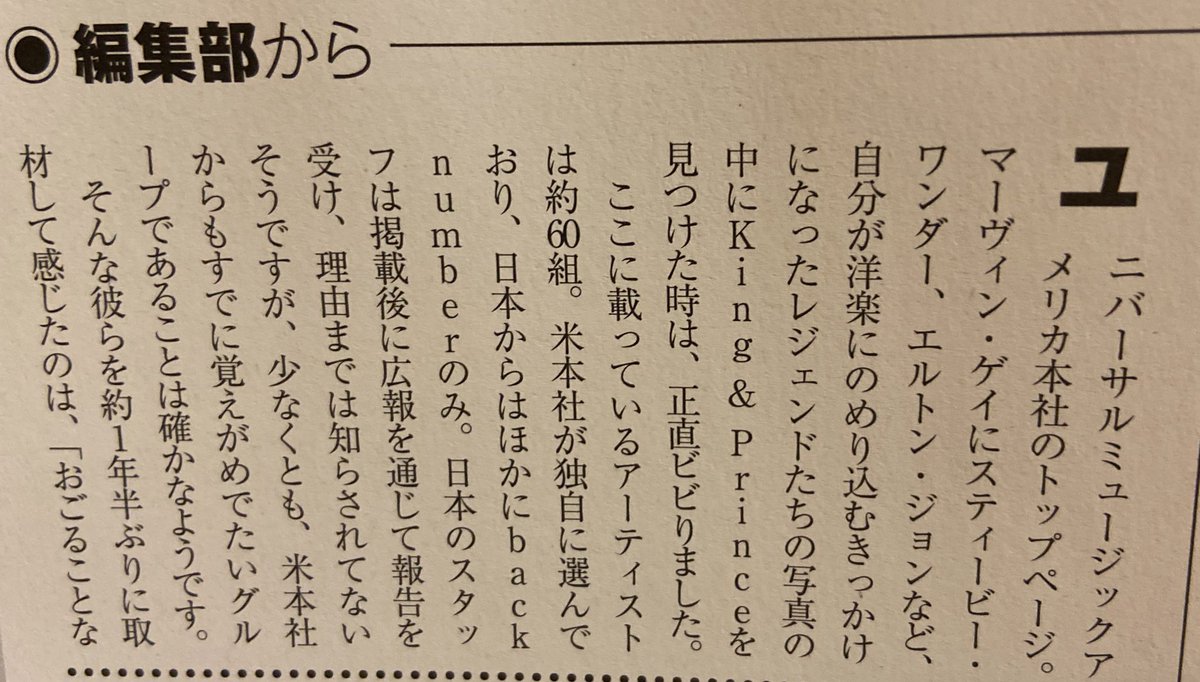 編集部から
ユニバーサルミュージックア
メリカ本社のトップページ。
マーヴィン・ゲイにスティービー・
ワンダー、エルトン・ジョンなど、
自分が洋楽にのめり込むきっかけ
になったレジェンドたちの写真の
中にKing&Princeを
見つけた時は、正直ビビりました。
ここに載っているアーティスト
は約60組。米本社が独自に選んで
おり、日本からはほかにback
numberのみ。日本のスタッ
フは掲載後に広報を通じて報告を
受け、理由までは知らされてない
そうですが、少なくとも、米本社
からもすでに覚えがめでたいグル
ープであることは確かなようです。
そんな彼らを約1年半ぶりに取
材して感じたのは、「おごることな